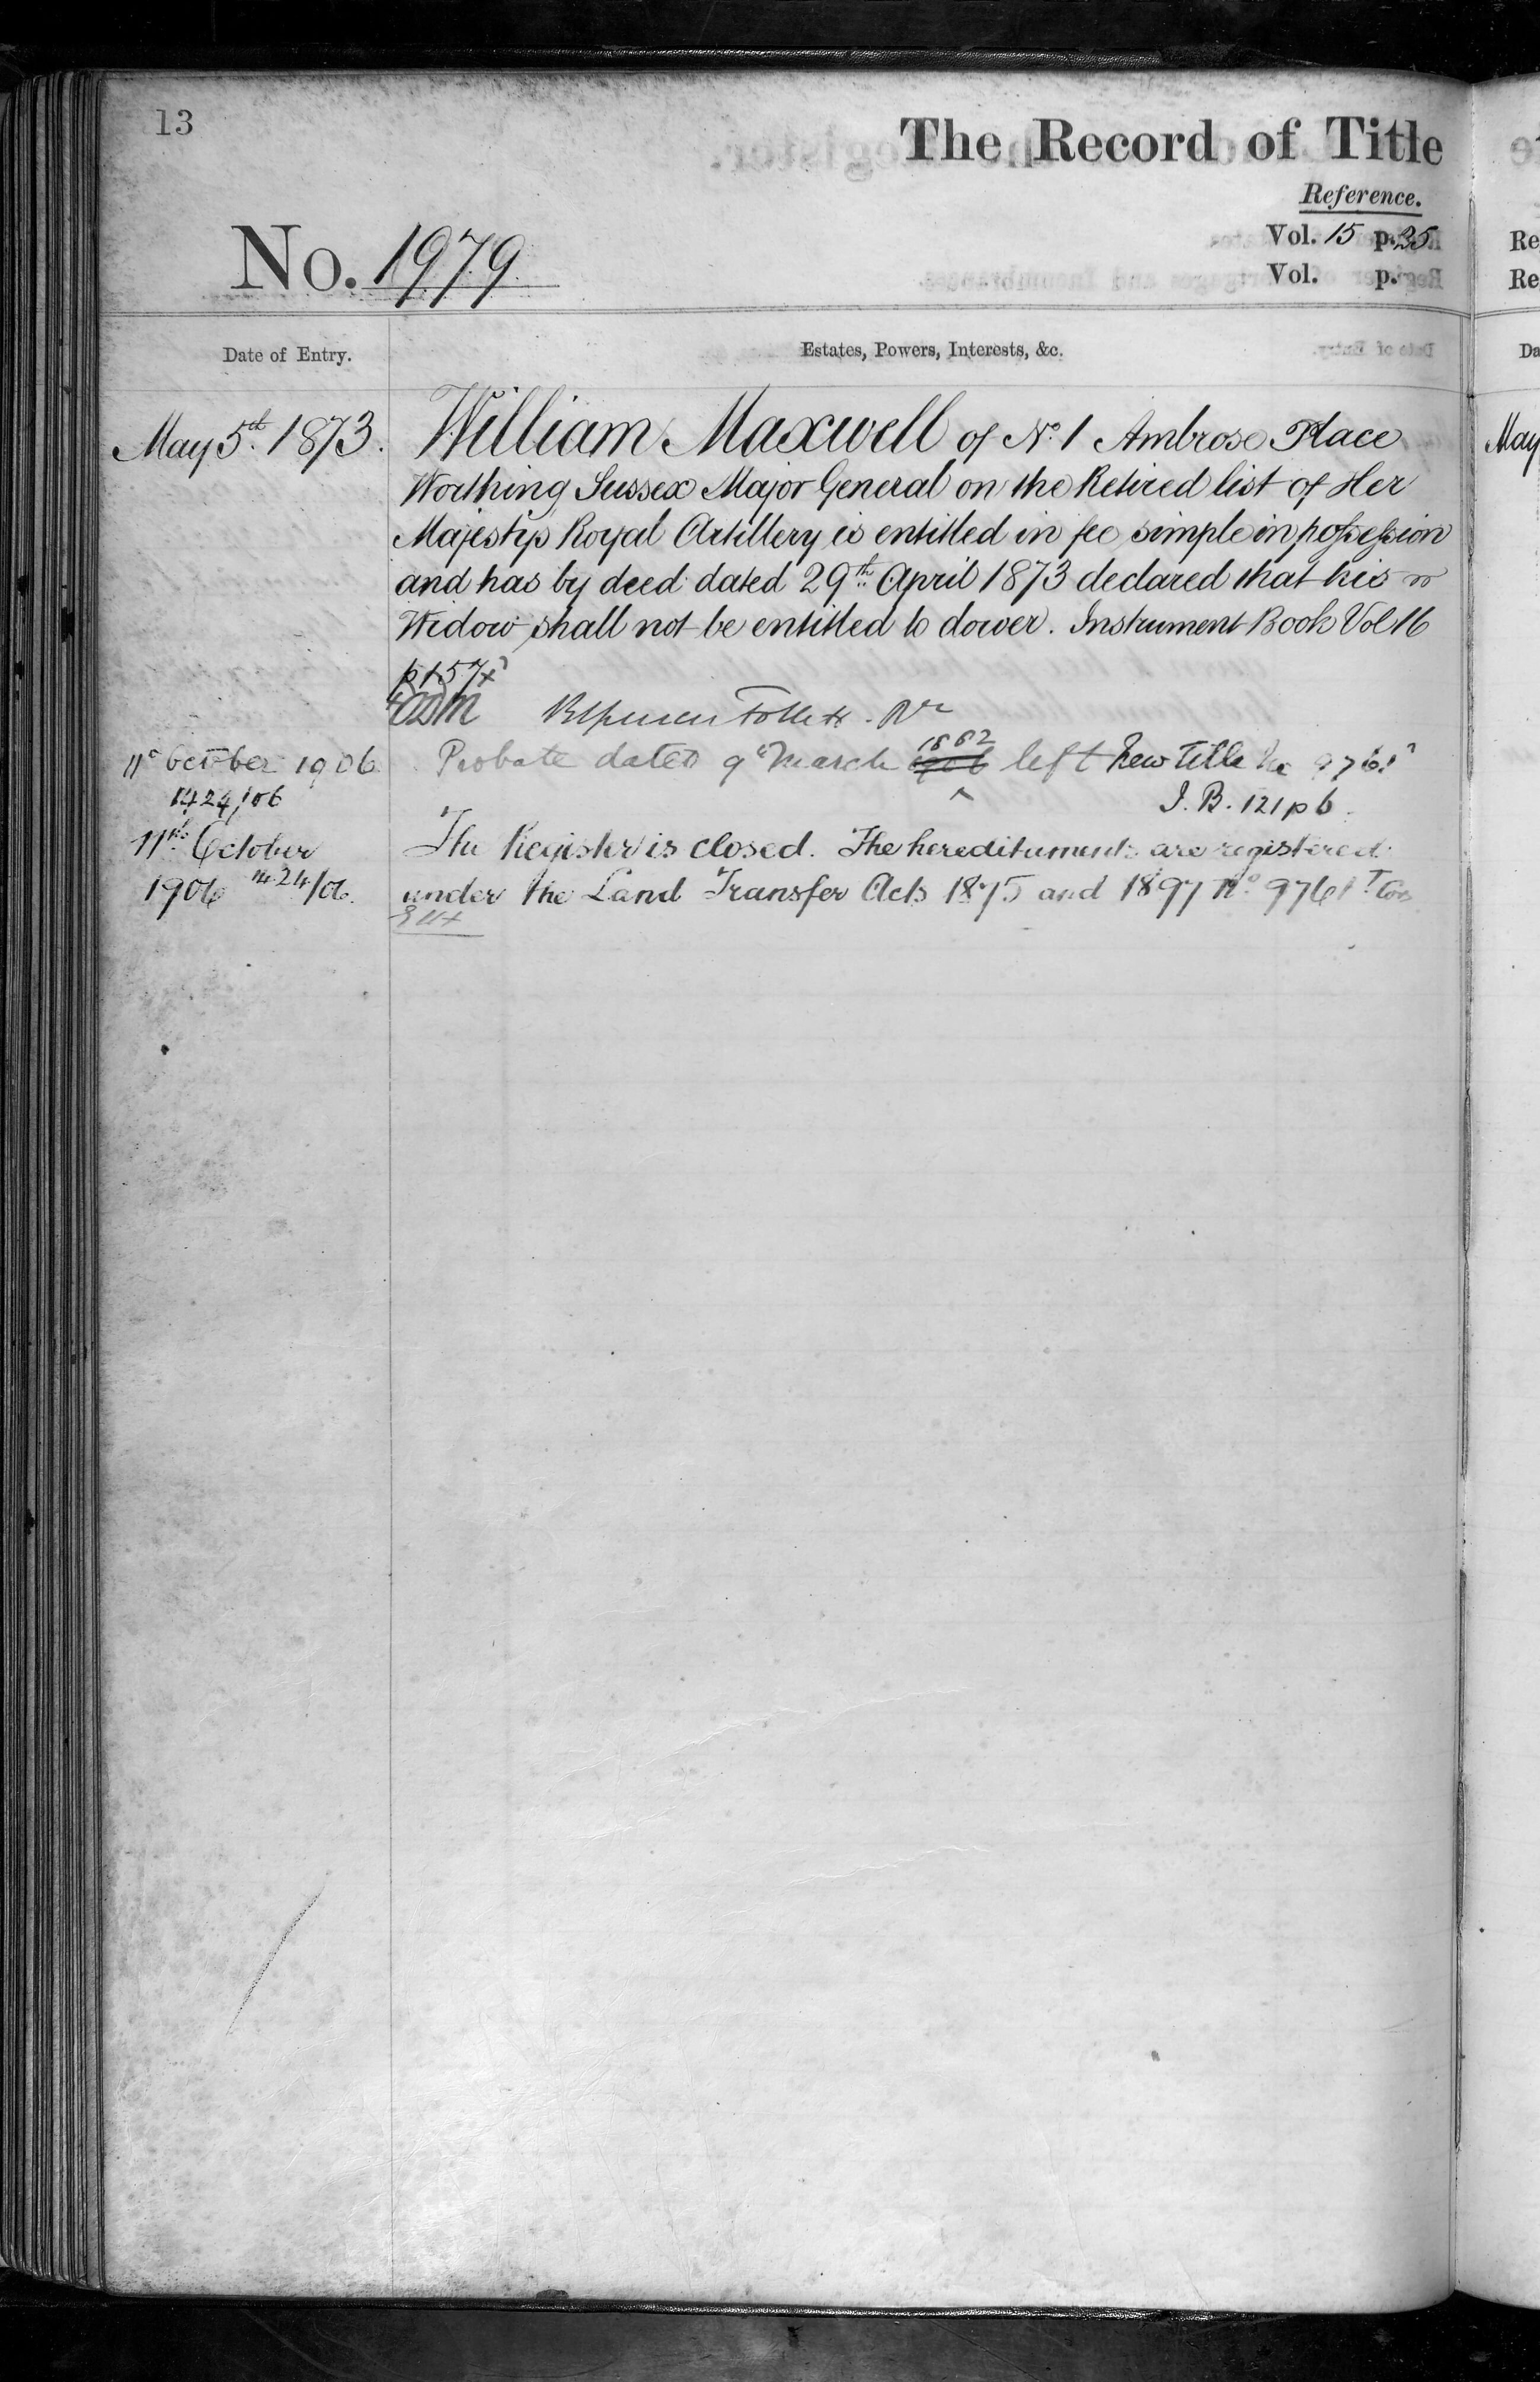 13
The Record of Title
Reference.
No. 1979
Vol. 15 p. 35
Vol. p.
Date of Entry.
Estates, Powers, Interests, &c.
May 5th. 1873.
William Maxwell of No. 1 Ambrose Place
Worthing Sussex Major General on the Retired list of Her
Majestys Royal Artillery is entitled in fee simple in possession
and has by deed dated 29th April 1873 declared that his
Widow shall not be entitled to dower. Instrument Book Vol 16
p 157
Follett
11 October 1906
Probate dated 9th March 1906 1882 left New Title No 9761
1424/06
I. B. 121 p 6
11th October
The Register is closed. The hereditaments are registered
1906 1424/06.
under the Land Transfer Acts 1875 and 1897 No 9761
Re
Re
Da
May